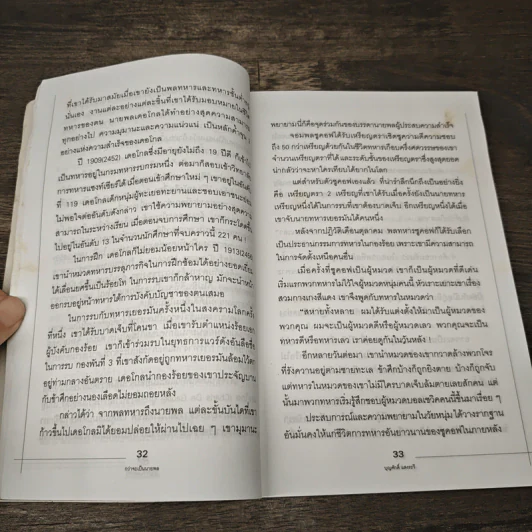 ที่เขาได้รับมาตมัยเมื่อเขายังเป็นพลทหารและทหารชั้นต่ำ
นั่นเอง งานแต่ละอย่างแต่ละชิ้นที่เขาได้รับมอบหมายในชีวิต
ทหารของตน นายพลเดอโกลได้ทำอย่างสุดความสามารถ
ทุกอย่างไป ความมุมานะและความแน่วแน่ เป็นหลักค้ำ
อย่างแห่งความสำเร็จของเดอโกล
ปี 1909(2452) เดอโกลซึ่งมีอายุยังไม่ถึง 19 ปีดี ก็เข้า
เป็นทหารอยู่ในกรมทหารราบกรมหนึ่ง ต่อมาก็สอบเข้าวิทยาลัย
การทหารแซงท์เซียร์ได้ เมื่อตอนเข้าศึกษาใหม่ ๆ เขาอยู่ในอันดับ
ที่ 119 เดอโกลเด็กหนุ่มผู้ทะเยอทะยานและชอบเอาชนะ
ไม่พอใจต่ออันดับดังกล่าว เขาใช้ความพยายามอย่างสุดความ
สามารถในระหว่างเรียน เมื่อตอนจบการศึกษา เขาก็กระเถิบขึ้น
ไปอยู่ในอันดับ 13 ในจำนวนนักศึกษาที่จบคราวนี้ 221 คน
ในการฝึก เดอโกลก็ไม่ยอมน้อยหน้าใคร ปี 1913(2456)
เขานำหมวดทหารบรรลุภารกิจในการฝึกซ้อมได้อย่างยอดเยี่ยม
ได้เลื่อนยศขึ้นเป็นร้อยโท ในการรบเขาก็กล้าหาญ มักจะนำหน้า
ออกรบอยู่หน้าทหารใต้การบังคับบัญชาของตนเสมอ
ในการรบกับทหารเยอรมันครั้งหนึ่งในสงครามโลกครั้ง
ที่หนึ่ง เขาได้รับบาดเจ็บที่โคนขา เมื่อเขารับตำแหน่งร้อยเอก
ผู้บังคับกองร้อย เขาก็เข้าร่วมรบในยุทธการแวร์ดังอันลือชื่อ
ในการรบ กองพันที่ 3 ที่เขาสังกัดอยู่ถูกทหารเยอรมันล้อมไว้
อยู่ท่ามกลางอันตราย เดอโกลนำกองร้อยของเขาประจัญบาน
กับข้าศึกอย่างนองเลือดไม่ยอมถอยหลัง
กล่าวได้ว่า จากพลทหารถึงนายพล แต่ละชั้นบันไดที่เขา
ก้าวขึ้นไปเดอโกลมิได้ยอมปล่อยให้ผ่านไปเฉย ๆ เขามุมานะ
32
กว่าจะเป็นนายพล
พยายามนี่ก็คือจุดร่วมกันของบรรดานายพลผู้ประสบความสำเร็จ
จอมพลซูคอฟได้รับเหรียญตราเชิดชูความดีความชอบ
ถึง 50 กว่าเหรียญด้วยกันในชีวิตทหารเกือบครึ่งศตวรรษของเขา
จำนวนเหรียญตราที่ได้ และระดับชั้นของเหรียญตราซึ่งสูงสุดยอด
น่ากลัวว่าจะหาใครเทียบได้ยากในโลก
แต่สำหรับตัวซูคอฟเองแล้ว ที่น่ารำลึกนึกถึงเป็นอย่างยิ่ง
คือ เหรียญตรา 2 เหรียญที่เขาได้รับเมื่อครั้งยังเป็นนายทหาร
เหรียญหนึ่งได้ในการรบที่เขาต้องบาดเจ็บ อีกเหรียญหนึ่งได้เมื่อ
เขาจับนายทหารเยอรมันได้คนหนึ่ง
หลังจากปฏิวัติเดือนตุลาคม พลทหารซูคอฟก็ได้รับเลือก
เป็นประธานกรรมการทหารในกองร้อย เพราะเขามีความสามารถ
ในการจัดตั้งเหนือคนอื่น
เมื่อครั้งที่ซูคอฟเป็นผู้หมวด เขาก็เป็นผู้หมวดที่ดีเด่น
เริ่มแรกพวกทหารไม่ไว้ใจผู้หมวดหนุ่มคนนี้ หัวเราะเยาะเขาเรื่อง
สวมกางเกงสีแดง เขาจึงพูดกับทหารในหมวดว่า
"สหายทั้งหลาย ผมได้รับแต่งตั้งให้มาเป็นผู้หมวดของ
พวกคุณ ผมจะเป็นผู้หมวดดีหรือผู้หมวดเลว พวกคุณจะเป็น
ทหารดีหรือทหารเลว เราค่อยดูกันในวันหลัง !
อีกหลายวันต่อมา เขานำหมวดของเขากวาดล้างพวกโจร
ที่รังควานอยู่ตามชายทะเล ข้าศึกบ้างก็ถูกยิงตาย บ้างก็ถูกจับ
แต่ทหารในหมวดของเขาไม่มีใครบาดเจ็บล้มตายเลยสักคน แต่
นั้นมาพวกทหารเริ่มรู้สึกชอบผู้หมวดบอลเชวิคคนนี้ขึ้นมาเรื่อย ๆ
ประสบการณ์และความพยายามในวัยหนุ่ม ได้วางรากฐาน
อันมั่นคงให้แก่ชีวิตการทหารอันยาวนานของซูคอฟในภายหลัง
33
บุญศักดิ์ แสงระวี